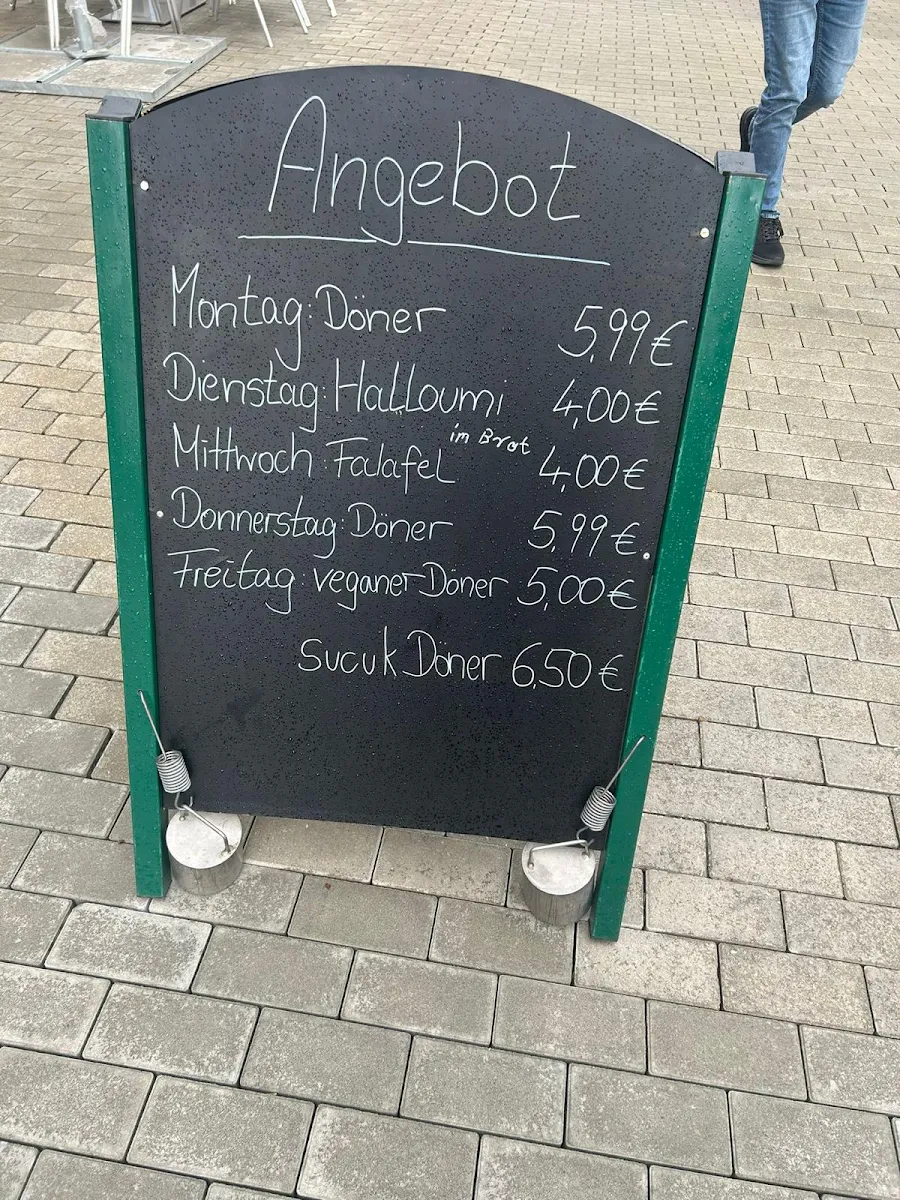 Angebot
Montag: Döner 5,99€
Dienstag: Halloumi 4,00€
im Brot
Mittwoch: Falafel 4,00€
Donnerstag: Döner 5,99€.
Freitag: veganer Döner 5,00€
Sucuk Döner 6,50€